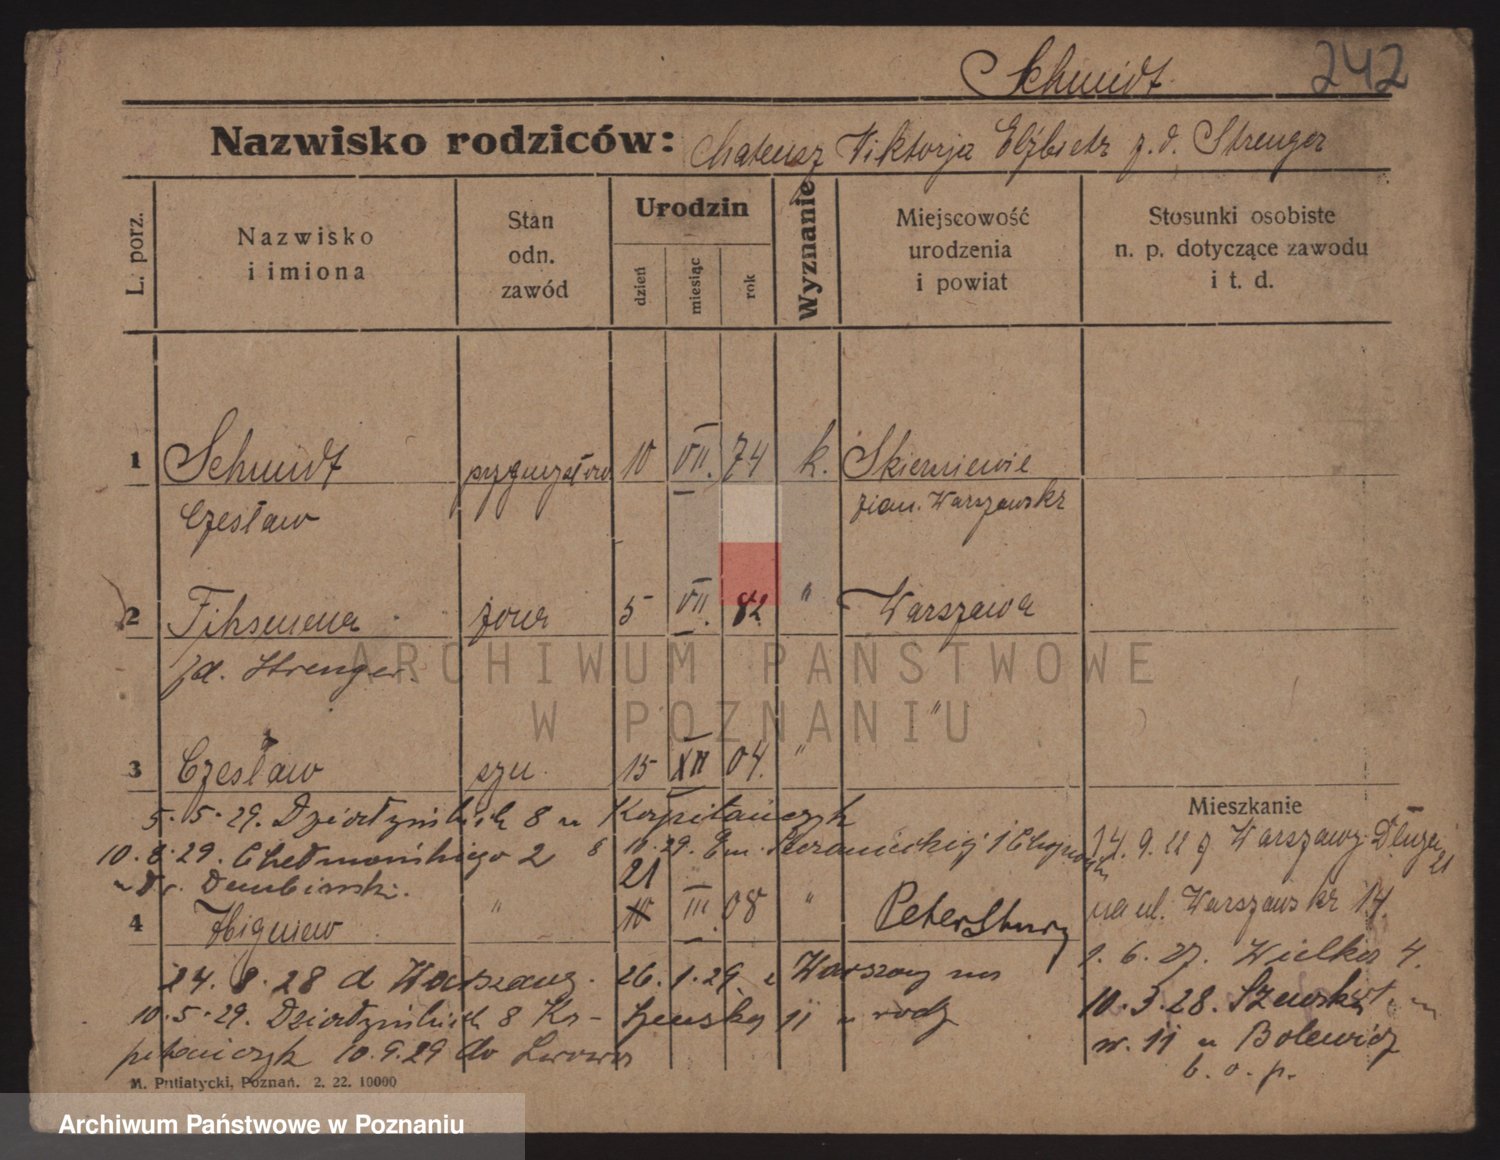 Schmidt 242
Nazwisko rodziców: Mateusz Viktorja Elżbieta z.d. Strenger
L. porz.
Nazwisko
i imiona
Stan
odn.
zawód
Urodzin
dzień
miesiąc
rok
Wyznanie
Miejscowość
urodzenia
i powiat
Stosunki osobiste
n. p. dotyczące zawodu
i t. d.
1 Schmidt 10 VII. 74 k. Skierniewie
Czesław ziem. Warszawska
2 żona 5 VII. 82 " Warszawa
zd. Strenger
ARCHIWUM PAŃSTWOWE
W POZNANIU
3 Czesław syn 15 XII 04. " "
Mieszkanie
5.5.29. Działyńskich 8 u Kapitańczyk
10.8.29. Chełmońskiego 2
u Dr. Dembiński.
14. 9. 22 z Warszawy Długa 21
4 Zbigniew " 21 10 III. 08 " Petersburg
na ul. Warszawska 14.
1. 6. 27. Wielka 4.
24. 8. 28 d Warszawa. 26. 1. 29. z Warszawy na
10. 3. 28. Szewska
10.5.29. Działyńskich 8 Ka- Szewska 11 u rodz
nr. 11 u Bolewicz
pitańczyk 10.9.29 do Lwowa
b. o. p.
M. Putiatycki, Poznań. 2. 22. 10000
Archiwum Państwowe w Poznaniu